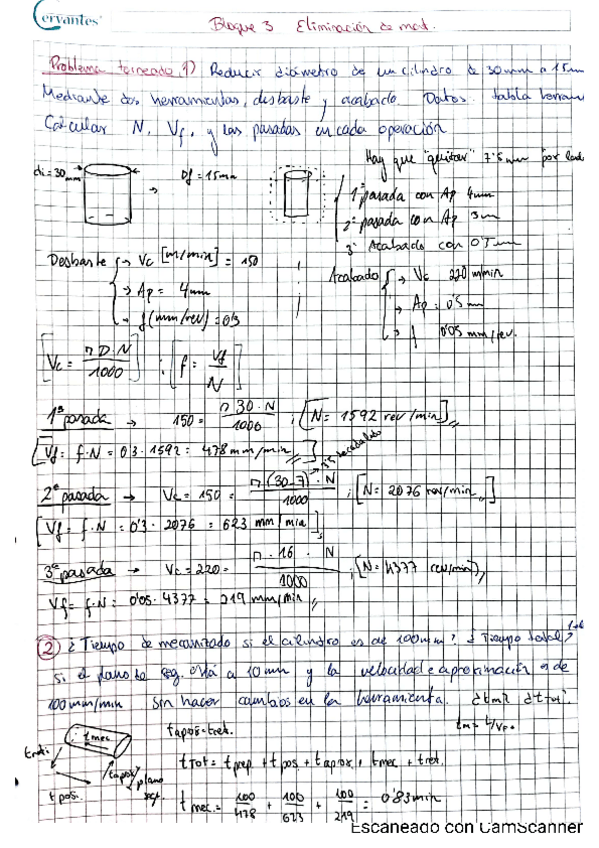 Cervantes
Bloque 3 Eliminación de mat.
Problema torneado 1) Reducir diámetro de un cilindro de 30mm a 15mm
Mediante dos herramientas, desbaste y acabado. Datos tabla herram
Calcular N, Vf, y las pasadas en cada operación
Hay que "quitar" 7'5mm por lado
di = 30mm → Df = 15mm
1ª pasada con Ap 4mm
2ª pasada con Ap 3mm
3ª Acabado con 0'5mm
Desbaste → Vc [m/min] = 150
→ Ap = 4mm
→ f (mm/rev) = 0'3
Acabado → Vc 220 m/min
→ Ap: 0'5 mm
→ f 0'05 mm/rev.
[Vc = π D·N / 1000] ; [f = Vf / N]
1ª pasada → 150 = π 30·N / 1000 ; [N = 1592 rev/min]
[Vf = f·N = 0'3·1592 = 478 mm/min]
2ª pasada → Vc = 150 = π (30-7)·N / 1000 ; [N = 2076 rev/min]
[Vf = f·N = 0'3·2076 = 623 mm/min]
3ª pasada → Vc = 220 = π·16·N / 1000 ; [N = 4377 rev/min]
Vf = f·N = 0'05·4377 = 219 mm/min
2) ¿Tiempo de mecanizado si el cilindro es de 100mm? ¿Tiempo total?
si el plano de seg. está a 10mm y la velocidad de aproximación es de
100mm/min sin hacer cambios en la herramienta. ¿tm? ¿ttot?
tm = L/Vf
t mec.
t retr.
t aprox
t pos.
plano seg.
taprox = tret.
tTot = tprep + tpos + taprox + tmec + tret.
t mec. = 100/478 + 100/623 + 100/219 = 0'83min
Escaneado con CamScanner